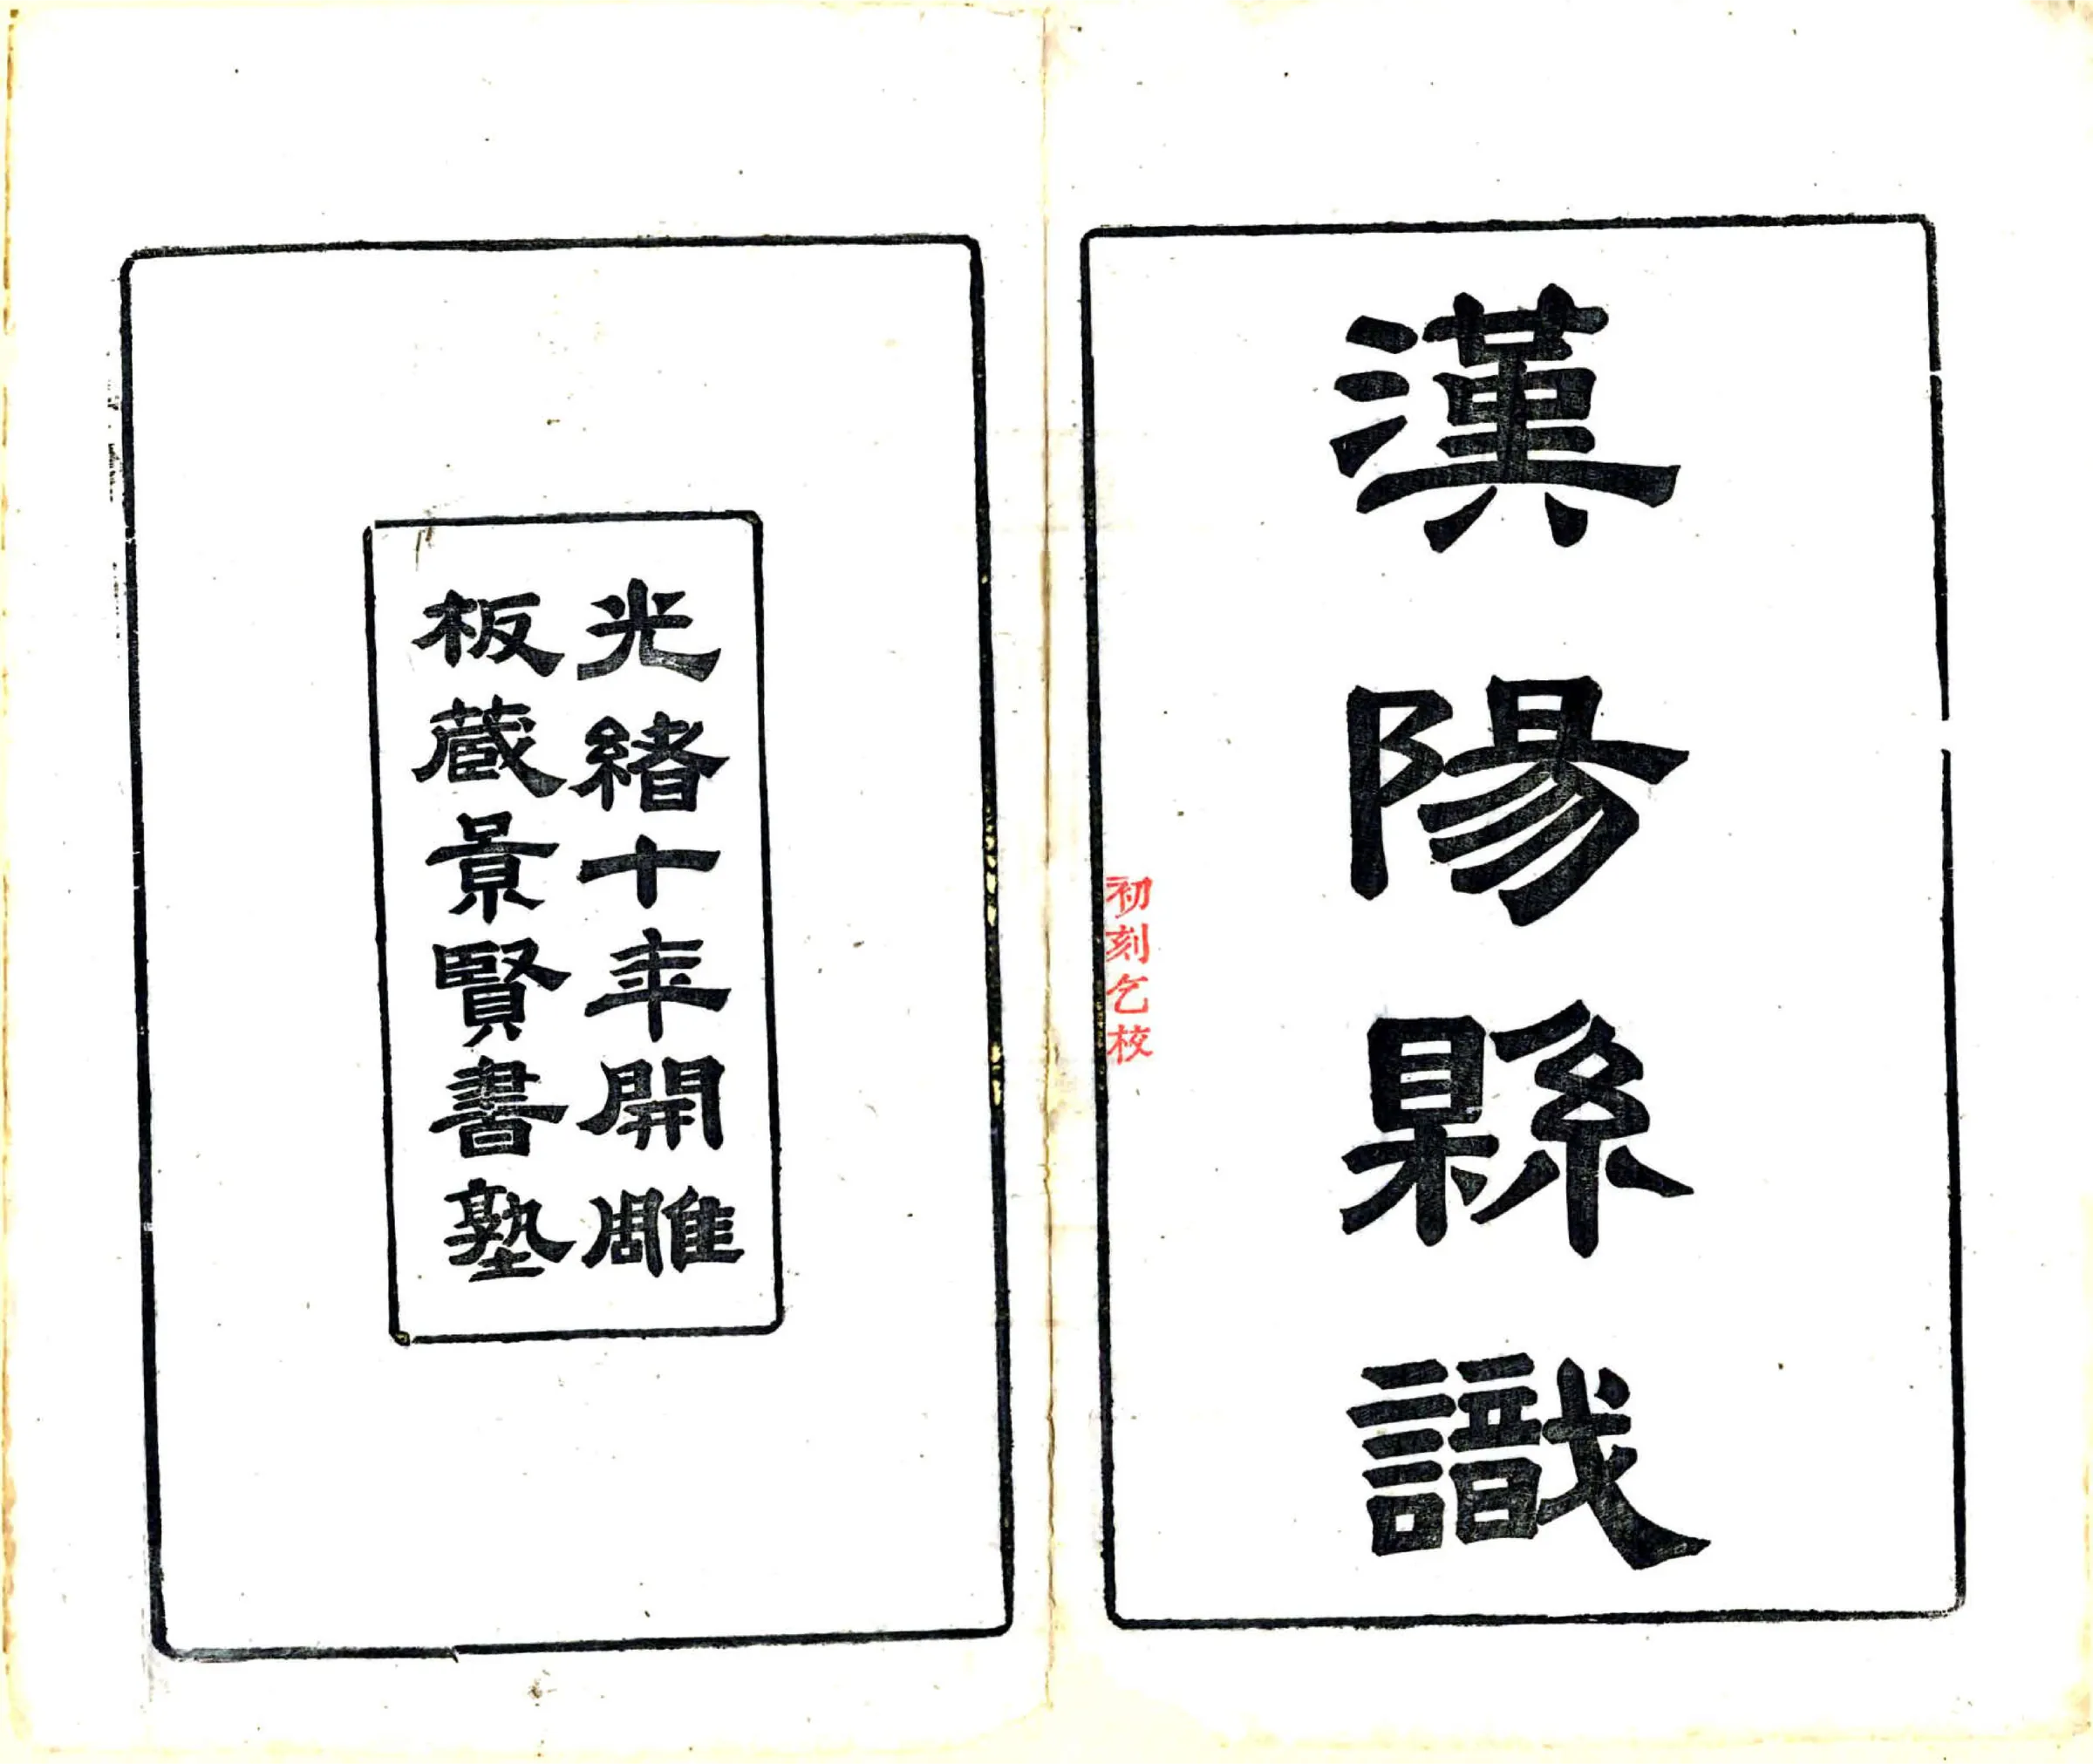 漢陽縣識
初刻乞校
光緒十年開雕
板藏景賢書塾